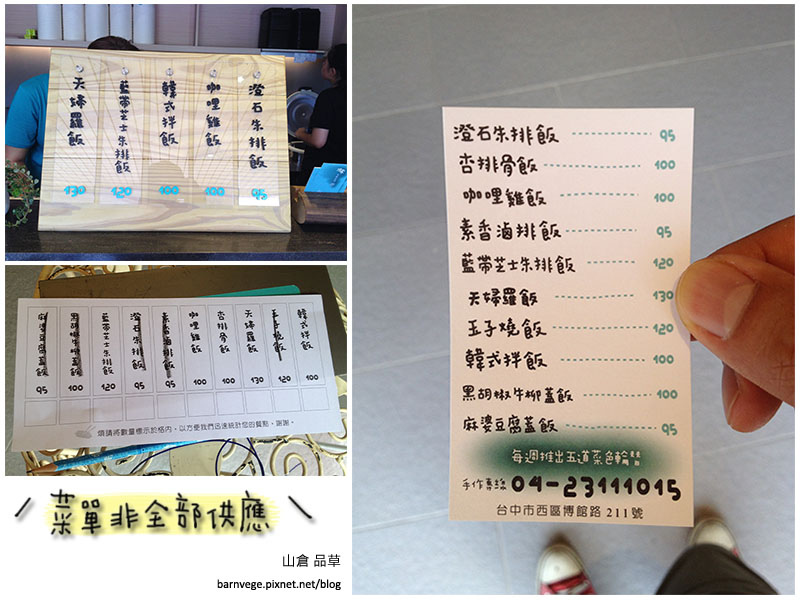 澄石朱排飯
95
咖哩雞飯
100
韓式拌飯
100
藍帶芝士朱排飯
120
天婦羅飯
130
韓式拌飯
100
玉子燒飯
120
天婦羅飯
130
杏排骨飯
100
咖哩雞飯
100
素香滷排飯
95
澄石朱排飯
95
藍帶芝士朱排飯
120
黑胡椒牛柳蓋飯
100
麻婆豆腐蓋飯
95
煩請將數量標示於格內，以方便我們迅速統計您的餐點，謝謝。
菜單非全部供應
山倉 品草
barnvege.pixnet.net/blog
澄石朱排飯 95
杏排骨飯 100
咖哩雞飯 100
素香滷排飯 95
藍帶芝士朱排飯 120
天婦羅飯 130
玉子燒飯 120
韓式拌飯 100
黑胡椒牛柳蓋飯 100
麻婆豆腐蓋飯 95
每週推出五道菜色輪
手作專線 04-23111015
台中市西區博館路 211 號